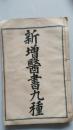 新增醫書九種